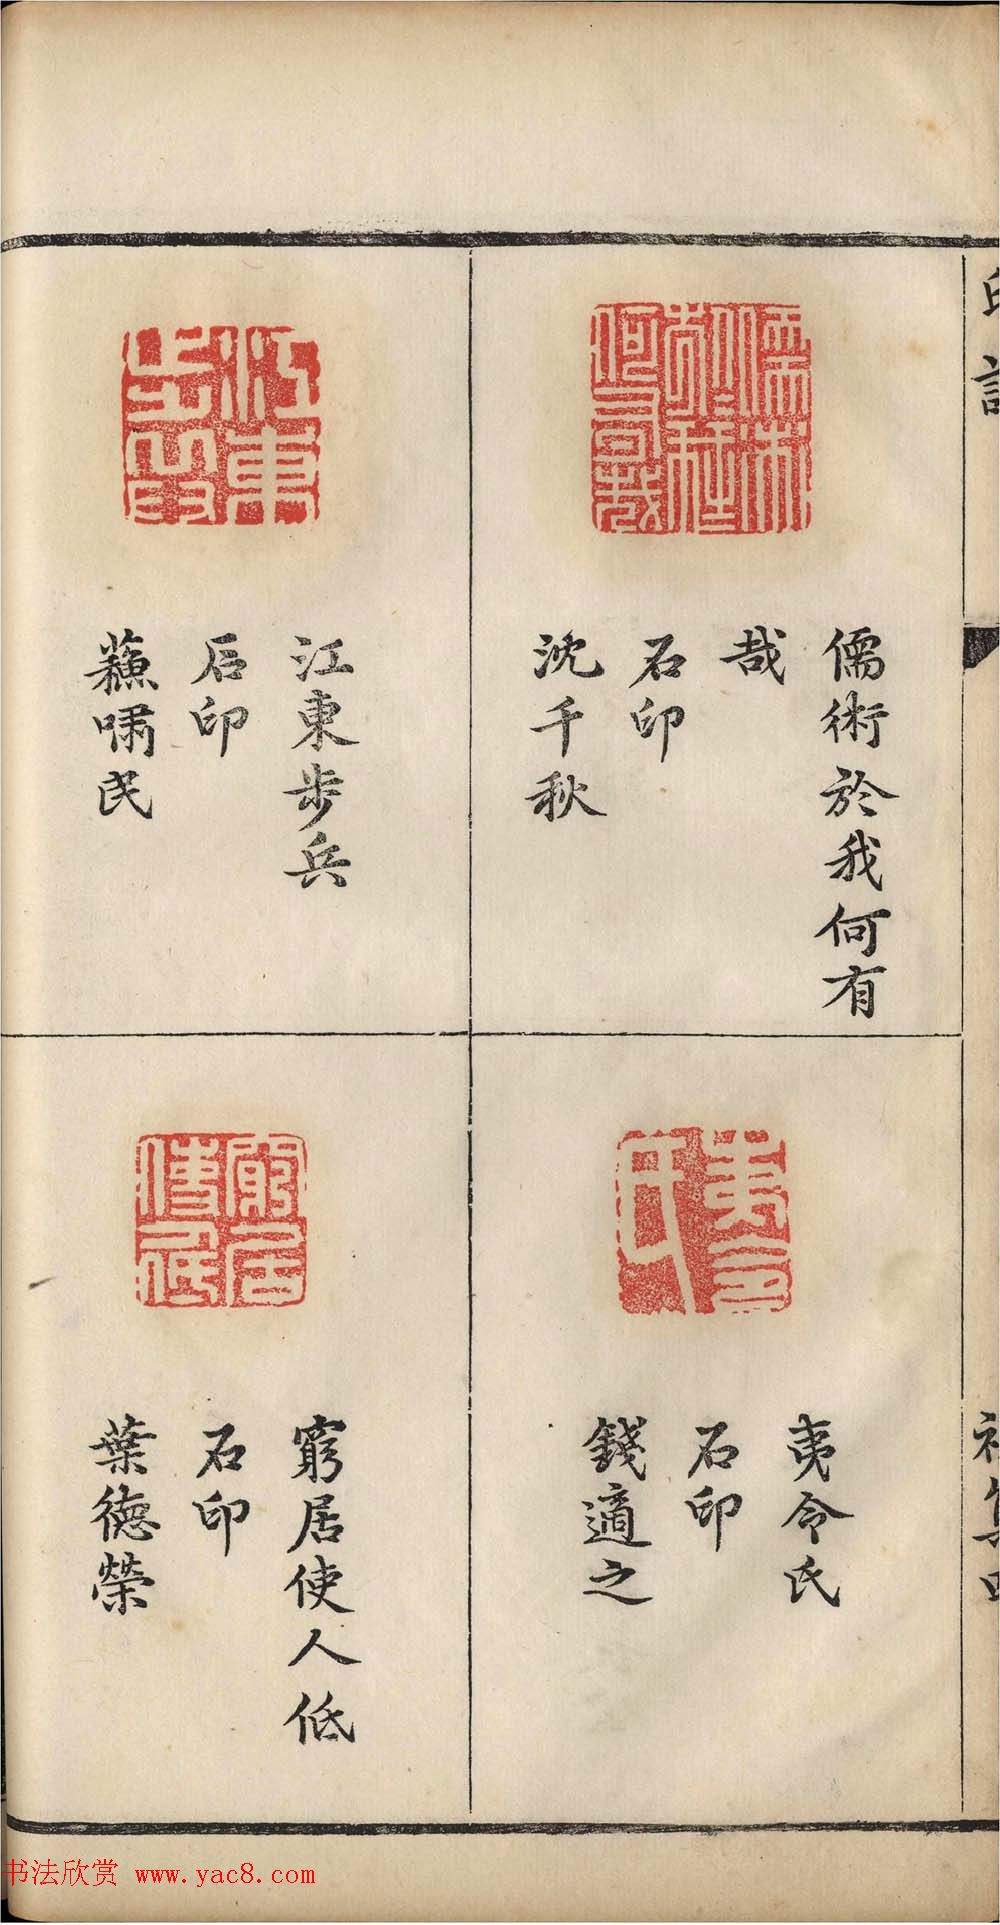 儒術於我何有
哉
石印
沈千秋
江東步兵
后印
蘓嘯民
夷令氏
石印
錢適之
窮居使人低
石印
葉德榮
书法欣赏 www.yac8.com